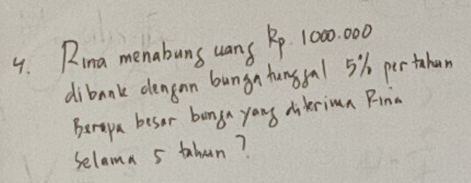 4. Rina menabung uang Rp. 1000.000
di bank dengan bunga tunggal 5% per tahun
Berapa besar bunga yang diterima Rina
Selama 5 tahun?